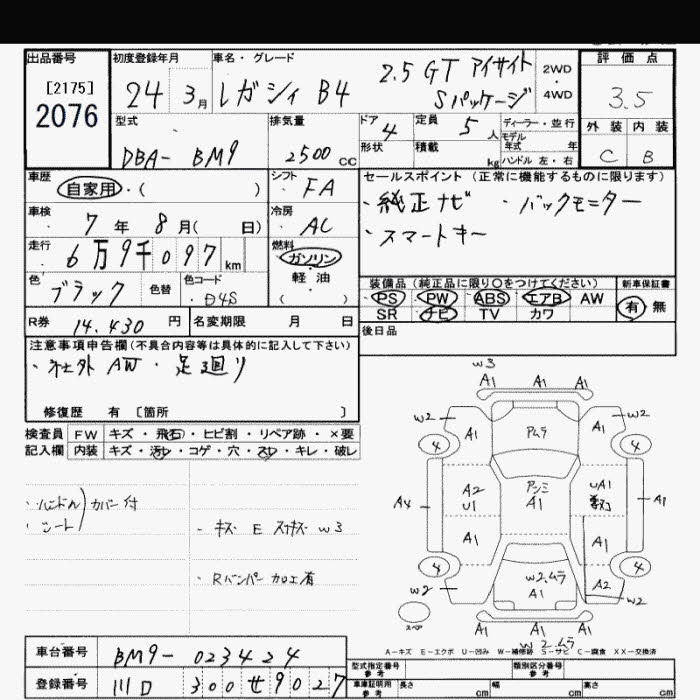 出品番号 初度登録年月 車名・グレード 評価点
[2175] 24 3月 レガシィ B4 2.5 GT アイサイト Sパッケージ 2WD・4WD 3.5
2076
型式 排気量 ドア 定員 ディーラー・並行 外装 内装
DBA- BM9 2500cc 4 5人 モデル年式 年 C B
形状 積載 kg ハンドル 左・右
車歴 シフト セールスポイント(正常に機能するものに限ります)
自家用・( ) FA ・純正ナビ ・バックモニター
車検 冷房 ・スマートキー
7年8月( 日) AC
走行 燃料
6万9千097km ガソリン・軽油 ( )
色 ブラック 色替 色コード D4S
装備品(純正品に限り〇をつけてください) 新車保証書
PS PW ABS エアB AW 有・無
SR ナビ TV カワ
R券 14,430円 名変期限 月 日 後日品
注意事項申告欄(不具合内容等は具体的に記入して下さい)
・社外 AW ・足廻り
修復歴 有 [箇所 ]
検査員 FW キズ・飛石・ヒビ割・リペア跡・×要
記入欄 内装 キズ・汚レ・コゲ・穴・スレ・キレ・破レ
・ハンドル カバー付
・シート
・キズ E スサキズ W3
・Rバンパー 加工有
W3
A1 A1 A1
W2 A1 ムラ A1 W2
4 4
A4 A2 U1 A1 UA1 A1
A1 A1
4 4
W2 W2,ムラ A1 A2
スペア A1 A1 A1
W2ムラ
A-キズ E-エクボ U-凹み W-補修跡 S-サビ C-腐食 XX-交換済
車台番号 BM9-023424
登録番号 川口 300 せ 9027
型式指定番号 参考 類別区分番号 参考
車車証明用 参考 長さ cm 幅 cm 高さ cm